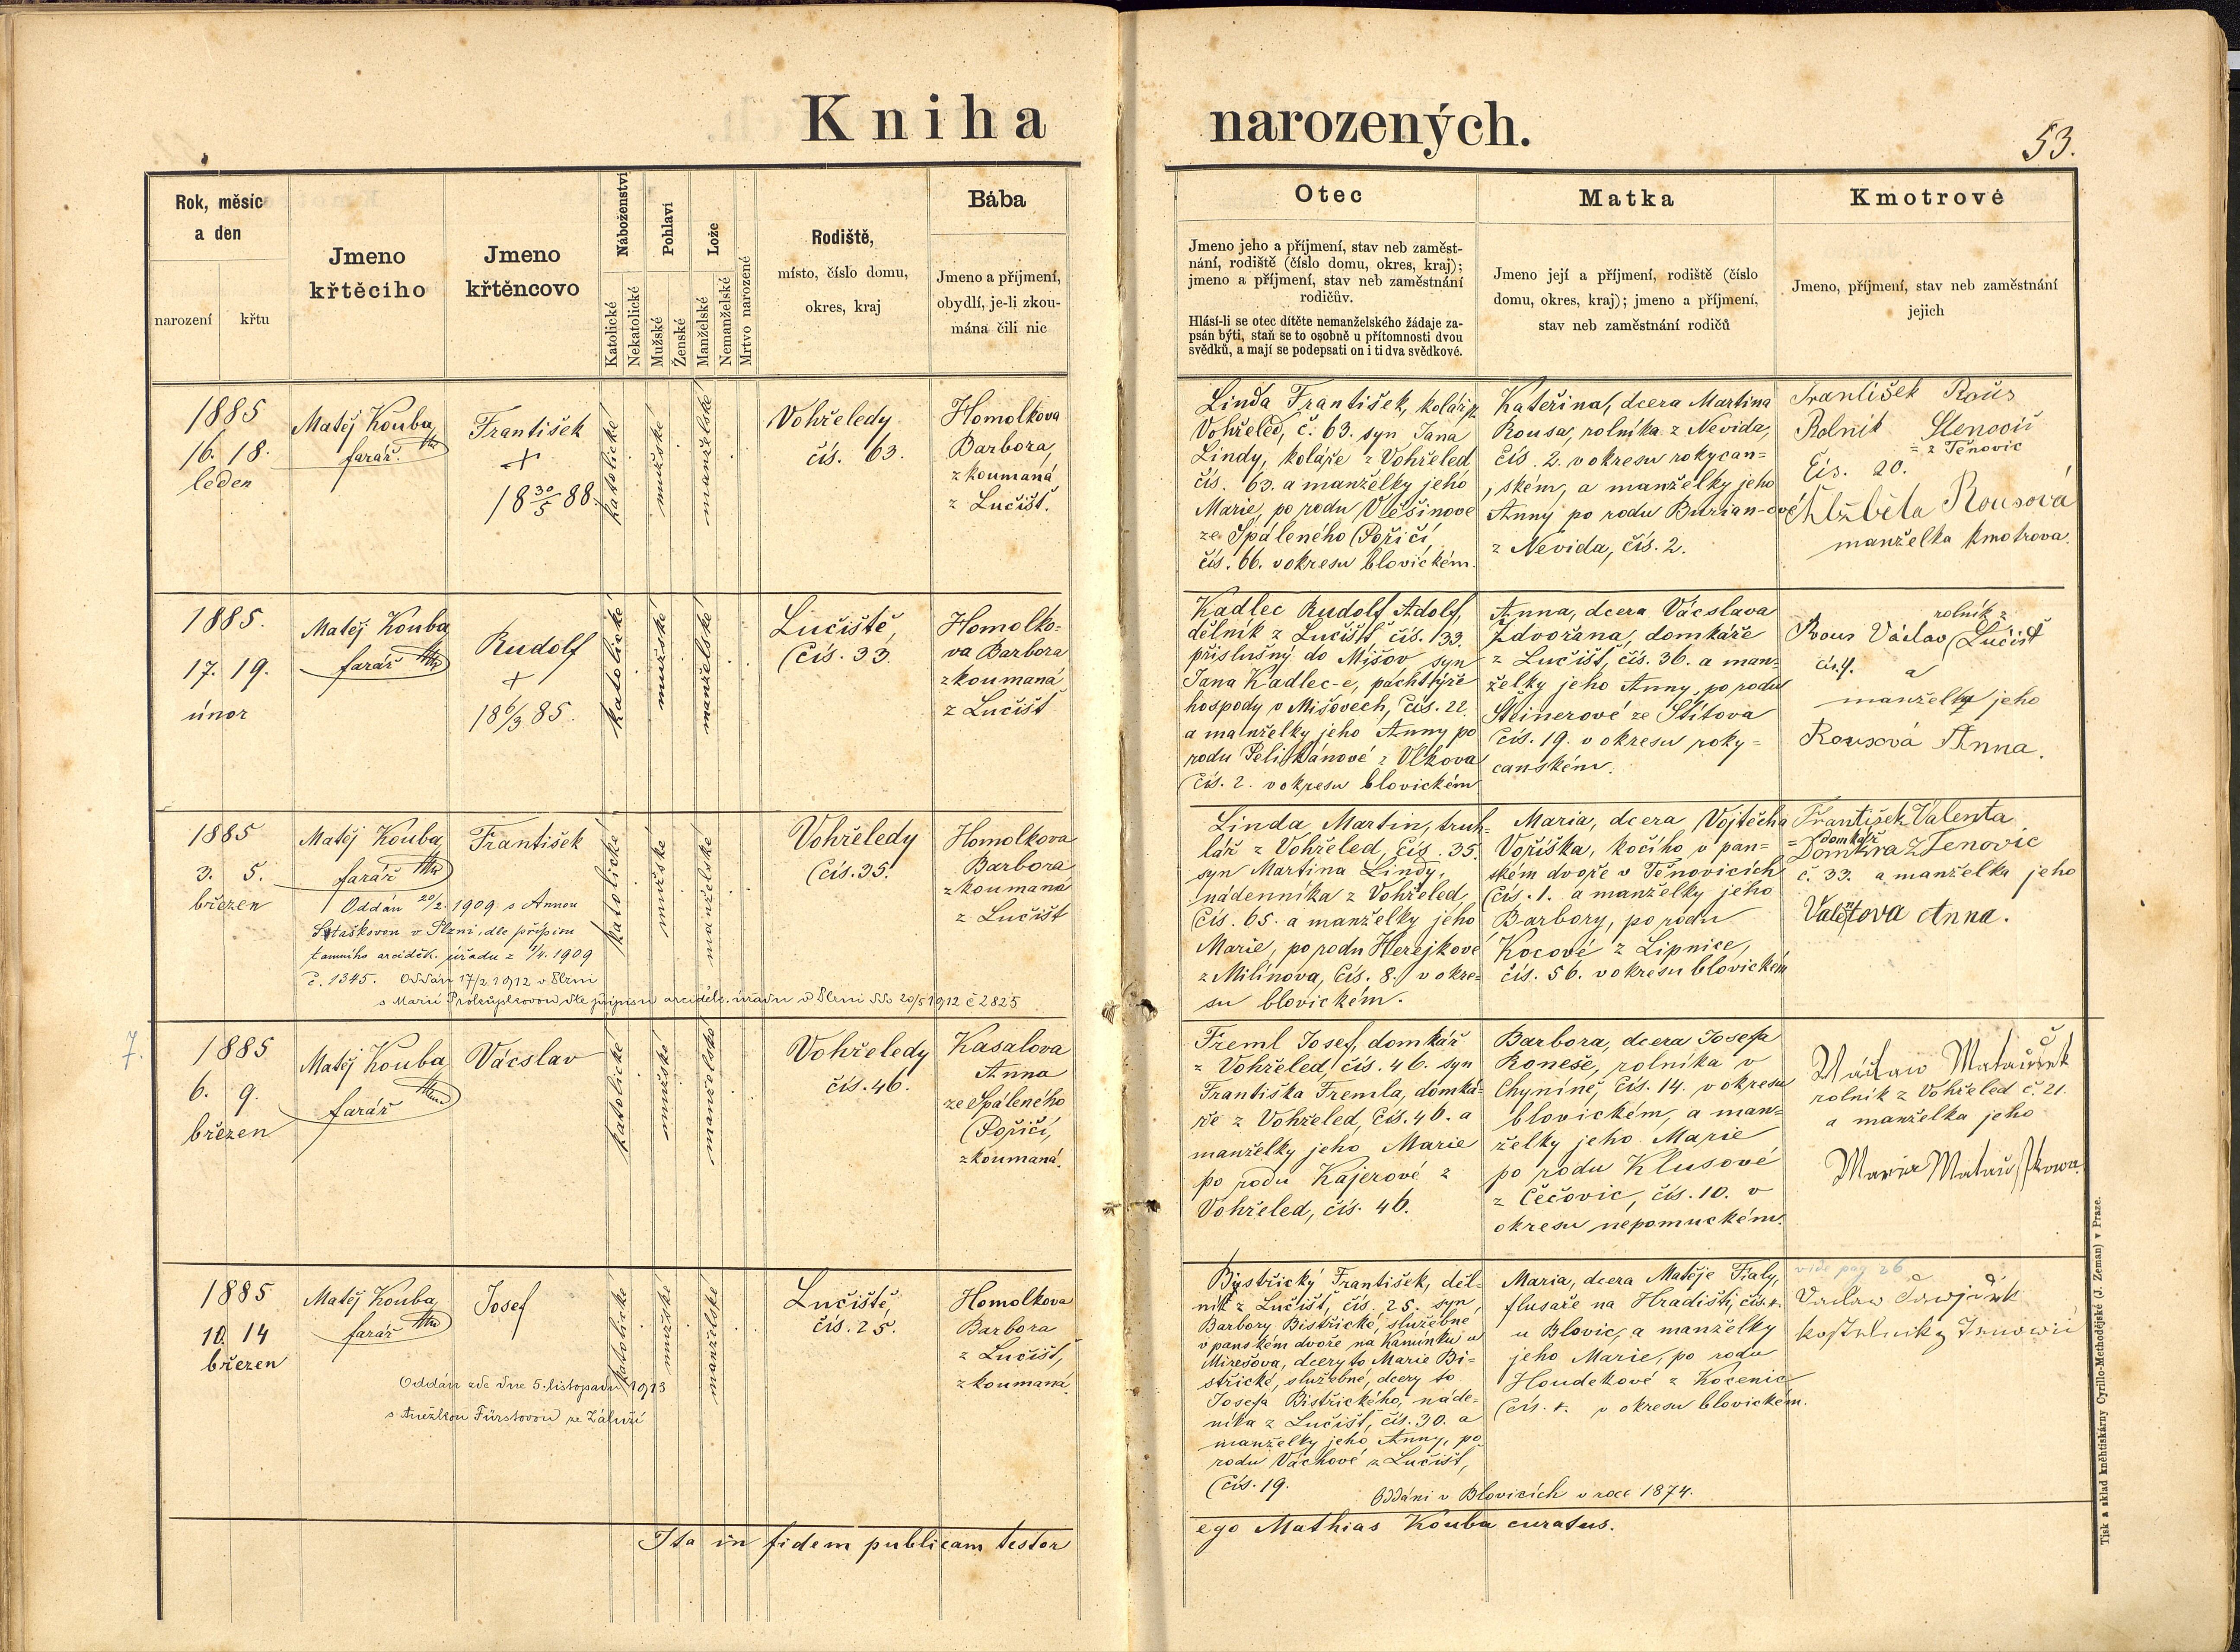 Kniha narozených.
53.
Rok, měsíc
a den
narození
křtu
Jmeno
křtěcího
Jmeno
křtěncovo
Náboženství
Katolické
Nekatolické
Pohlaví
Mužské
Ženské
Lože
Manželské
Nemanželské
Mrtvo narozené
Rodiště,
místo, číslo domu,
okres, kraj
Bába
Jmeno a příjmení,
obydlí, je-li zkou-
mána čili nic
Otec
Jmeno jeho a příjmení, stav neb zaměst-
nání, rodiště (číslo domu, okres, kraj);
jmeno a příjmení, stav neb zaměstnání
rodičův.
Hlásí-li se otec dítěte nemanželského žádaje za-
psán býti, staň se to osobně u přítomnosti dvou
svědků, a mají se podepsati on i ti dva svědkové.
Matka
Jmeno její a příjmení, rodiště (číslo
domu, okres, kraj); jmeno a příjmení,
stav neb zaměstnání rodičů
Kmotrové
Jmeno, příjmení, stav neb zaměstnání
jejich
1885
16. 18.
leden
Matěj Kouba
farář
František
+
18 30/5 88.
katolické
mužské
manželské
Vohřeledy
čís. 63.
Homolkova
Barbora,
zkoumaná
z Lučišť.
Linda František, kolář z
Vohřeled, č. 63. syn Jana
Lindy, koláře z Vohřeled
čís. 63. a manželky jeho
Marie, po rodu
ze Spáleného Poříčí,
čís. 66. v okresu blovickém.
Kateřina, dcera Martina
Rousa, rolníka z Nevida,
čís. 2. v okresu rokycan=
ském, a manželky jeho
Anny po rodu Burian-ové
z Nevida, čís. 2.
František Rous
Rolník
= z Těnovic
Čís. 20.
Alžběta Rousová
manželka kmotrova.
1885.
17. 19.
únor
Matěj Kouba
farář
Rudolf
+
18 6/3 85.
katolické
mužské
manželské
Lučiště,
Čís. 33.
Homolko-
va Barbora
zkoumaná
z Lučišť
Kadlec Rudolf Adolf,
dělník z Lučišť, čís. 33.
příslušný do Mišov, syn
Jana Kadlec-e, pachtýře
hospody v Mišovech, čís. 22.
a manželky jeho Anny po
rodu Pelikánové z Vlkova
Čís. 2. v okresu blovickém
Anna, dcera Vácslava
Zdvořana, domkáře
z Lučišť, čís. 36. a man=
želky jeho Anny, po rodu
Šteinerové ze Štítova
Čís. 19. v okresu roky=
canském.
rolník z
Rous Václav Lučišť
čís. 4. a
manželka jeho
Rousová Anna.
1885
3. 5.
březen
Matěj Kouba
farář
František
Oddán 20/2. 1909 s Annou
v Plzni, dle přípisu
tamního arciděk. úřadu z 1/4. 1909
č. 1345. Oddán 17/2 1912 v Plzni
s Marií Prokůpkovou dle přípisu arciděk. úřadu v Plzni ddo 20/5 1912 č 2825
katolické
mužské
manželské
Vohřeledy
Čís. 35.
Homolkova
Barbora
zkoumaná
z Lučišť
Linda Martin, truh-
lář z Vohřeled, čís. 35.
syn Martina Lindy,
nádenníka z Vohřeled,
Čís. 65. a manželky jeho
Marie, po rodu Herejkové
z Milínova, Čís. 8. v okre-
su blovickém.
Maria, dcera Vojtěcha
Voříška, kočího v pan=
ském dvoře v Těnovicích
Čís. 1. a manželky jeho
Barbory, po rodu
Kocové z Lipnice,
čís. 56. v okresu blovickém
František Valenta
= domkář
z Tenovic
č. 33. a manželka jeho
Anna.
7.
1885
6. 9.
březen
Matěj Kouba
farář
Vácslav
katolické
mužské
manželské
Vohřeledy
čís. 46.
Kasalova
Anna
ze Spáleného
Poříčí,
zkoumaná.
Treml Josef, domkář
z Vohřeled, čís. 46. syn
Františka Tremla, domká-
ře z Vohřeled, Čís. 46. a
manželky jeho Marie
po rodu Kajerové z
Vohřeled, čís. 46.
Barbora, dcera Josefa
Roneše, rolníka v
Chyníně, Čís. 14. v okresu
blovickém, a man=
želky jeho Marie
po rodu Klusové
z Čečovic, čís. 10. v
okresu nepomuckém.
rolník z Vohřeled č. 21.
a manželka jeho
1885
10. 14
březen
Matěj Kouba
farář
Josef
Oddán zde dne 5. listopadu 1913
s Anežkou Fürstovou ze Záluží
katolické
mužské
manželské
Lučiště,
čís. 25.
Homolkova
Barbora
z Lučišť,
zkoumaná.
Bystřický František, děl-
ník z Lučišť, čís. 25. syn
Barbory Bistřické, služebné
v panském dvoře na Kamínku u
Mirešova, dcery to Marie Bi-
střické, služebné, dcery to
Josefa Bistřického, náde-
níka z Lučišť, čís. 30. a
manželky jeho Anny, po
rodu Váchové z Lučišť,
Čís. 19.
Oddáni v Blovicích v roce 1874.
Maria, dcera Matěje Fialy,
flusaře na Hradišti, čís.
u Blovic, a manželky
jeho Marie, po rodu
Houdekové z Kocenic
Čís. v okresu blovickém.
vide pag 26
Ita in fidem publicam testor
ego Mathias Kouba curatus.
Tisk a sklad kněhtiskárny Cyrillo-Methodějské (J. Zeman) v Praze.